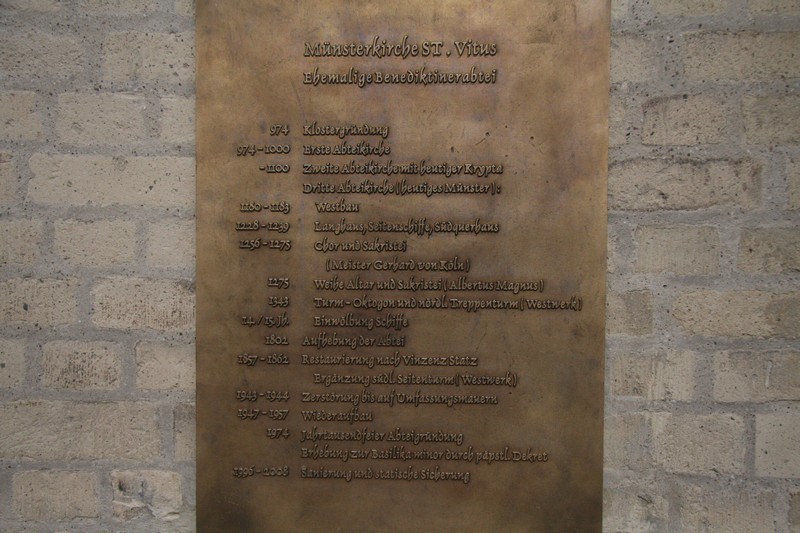 Münsterkirche ST. Vitus
Ehemalige Benediktinerabtei
974 Klostergründung
974 - 1000 Erste Abteikirche
- 1100 Zweite Abteikirche mit heutiger Krypta
Dritte Abteikirche (heutiges Münster):
1180 - 1183 Westbau
1228 - 1239 Langhaus, Seitenschiffe, Südquerhaus
1256 - 1275 Chor und Sakristei
(Meister Gerhard von Köln)
1275 Weihe Altar und Sakristei (Albertus Magnus)
1343 Turm - Oktogon und nördl. Treppenturm (Westwerk)
14./15. Jh. Einwölbung Schiffe
1802 Aufhebung der Abtei
1857 - 1862 Restaurierung nach Vinzenz Statz
Ergänzung südl. Seitenturm (Westwerk)
1943 - 1944 Zerstörung bis auf Umfassungsmauern
1947 - 1957 Wiederaufbau
1974 Jahrtausendfeier Abteigründung
Erhebung zur Basilika minor durch päpstl. Dekret
1996 - 2008 Sanierung und statische Sicherung